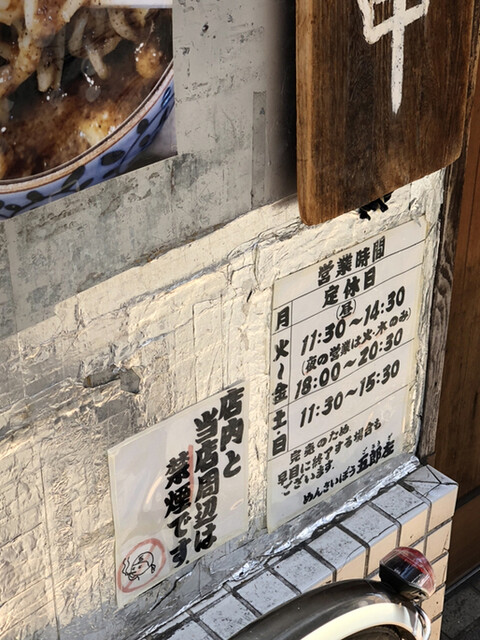 営業時間
月 定休日
火～金 (昼) 11:30～14:30
(夜の営業は火・木のみ)
18:00～20:30
土日 11:30～15:30
完売のため
早目に終了する場合も
ございます。
めんさいぼう 五郎左
店内と
当店周辺は
禁煙です。